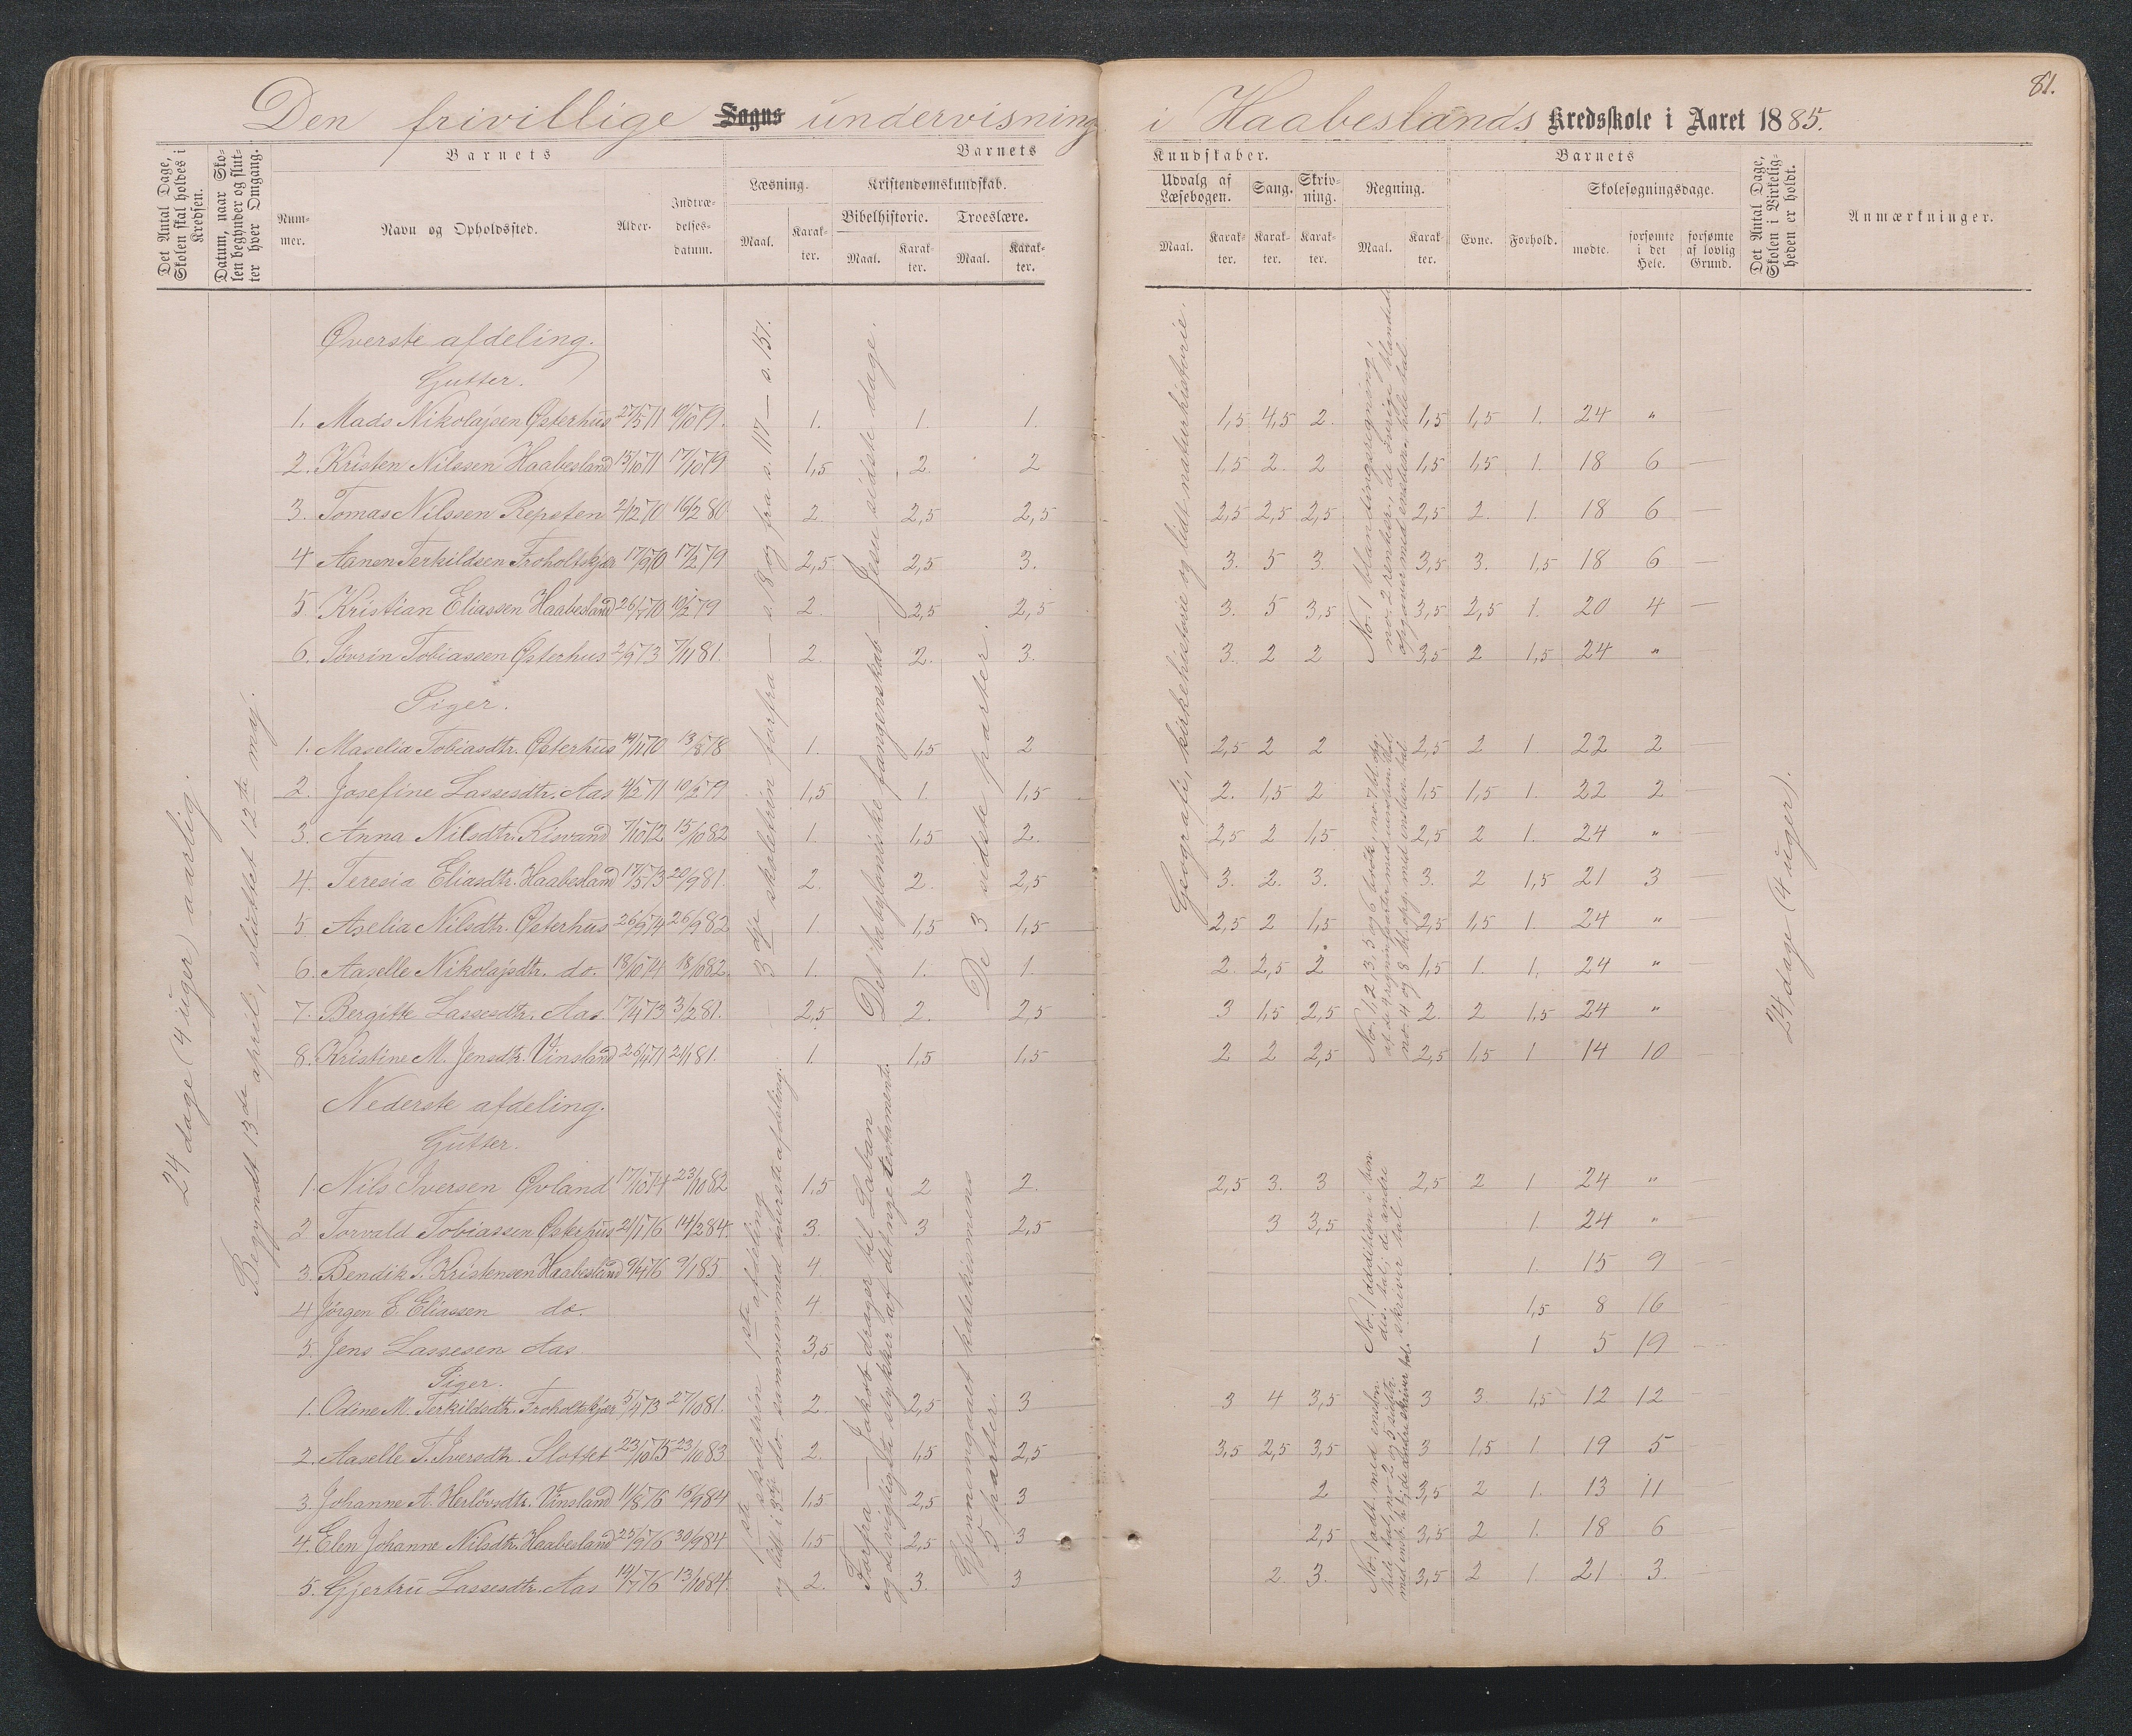 81.
Den frivillige Sogns undervisning i Haabeslands Kredsskole i Aaret 1885.
Det Antal Dage, Skolen skal holdes i Kredsen.
Datum, naar Skolen begynder og slutter hver Omgang.
Barnets
Nummer.
Navn og Opholdssted.
Alder.
Indtrædelsesdatum.
Barnets Kundskaber.
Læsning.
Maal.
Karakter.
Kristendomskundskab.
Bibelhistorie.
Maal.
Karakter.
Troeslære.
Maal.
Karakter.
Udvalg af Læsebogen.
Maal.
Karakter.
Sang.
Karakter.
Skrivning.
Karakter.
Regning.
Maal.
Karakter.
Barnets
Evne.
Forhold.
Skolesøgningsdage.
mødte.
forsømte i det Hele.
forsømte af lovlig Grund.
Det Antal Dage, Skolen i Virkeligheden er holdt.
Anmærkninger.
24 dage (4 uger) aarlig.
Begyndt 13de april, sluttet 12te maj.
Øverste afdeling.
Gutter.
1. Mads Nikolajsen Østerhus 27/5 71 10/10 79. 1. 1. 1. 1,5 4,5 2. 1,5 1,5 1. 24 "
2. Kristen Nilssen Haabesland 15/10 71 17/10 79 1,5 2. 2 1,5 2. 2 1,5 1,5 1. 18 6 —
3. Tomas Nilssen Repsten 2/12 70 16/2 80 2 2,5 2,5 2,5 2,5 2,5 2,5 2. 1. 18 6 —
4 Aanen Terkildsen Froholtskjær 17/9 70 17/2 79 2,5 2,5 3. 3. 5 3 3,5 3. 1,5 18 6 —
5 Kristian Eliassen Haabesland 26/1 70 10/2 79 2. 2,5 2,5 3. 5 3,5 3,5 2,5 1. 20 4 —
6. Søvrin Tobiassen Østerhus. 2/9 73 7/1 81. 2. 2. 3. 3. 2 2 3,5 2 1,5 24 "
Piger.
1. Maselia Tobiasdtr. Østerhus 19/11 70 13/8 78 1. 1,5 2 2,5 2 2 2,5 2 1 22 2
2. Josefine Lassesdtr. Aas 4/2 71 10/2 79 1,5 1. 1,5 2. 1,5 2 1,5 1,5 1. 22 2
3. Anna Nilsdtr. Risvand 7/10 72 15/10 82 1. 1,5 2. 2,5 2 1,5 2,5 2 1. 24 "
4. Teresia Eliasdtr. Haabesland 17/5 73 20/9 81. 2. 2. 2,5 3. 2. 3. 3. 2 1,5 21 3
5. Aselia Nilsdtr. Østerhus 26/9 74 26/9 82 1. 1,5 1,5 2,5 2 1,5 2,5 1,5 1. 24 "
6. Aaselle Nikolajsdtr. do. 18/10 74 18/10 82. 1. 1. 1. 2. 2,5 2 1,5 1. 1. 24 "
7. Bergitte Lassesdtr. Aas. 17/4 73 3/2 81. 2,5 2. 2,5 3 1,5 2,5 2. 2 1,5 24 "
8. Kristine M. Jensdtr. Vinsland 26/4 71 2/1 81. 1. 1,5 1,5 2 2 2,5 2,5 1,5 1 14 10
3dje skoletrin forfra — s. 18 og fra s. 117 — s. 157.
Det babyloniske fangenskab — Jesu sidste dage.
De 3 sidste parter.
Geografi, kirkehistorie og lidt naturhistorie.
No. 1 blandingsregning, no. 2 renter, de øvrige blandede
24 dage (4 uger).
Nederste afdeling.
Gutter.
1. Nils Iversen Øvland 17/10 74 23/10 82 1,5 2 2. 2,5 3. 3 2,5 2 1 24 "
2. Torvald Tobiassen Østerhus 21/1 76 14/2 84. 3. 3 2,5 3 3,5 1 24 "
3. Bendik S. Kristensen Haabesland 9/4 76 9/1 85. 4. 1. 15 9
4 Jørgen E. Eliassen do. 4 1,5 8 16
5 Jens Lassesen Aas 3,5 1 5 19
Piger.
1. Odine M. Terkildsdtr. Froholtskjær 5/4 73 27/10 81. 2. 2,5 3 3 4 3,5 3 3. 1,5 12 12
2. Aaselle T. Iversdtr. Slottet 23/10 75 23/10 83 2. 1,5 2,5 3,5 2,5 3,5 3 1,5 1. 19 5
3. Johanne A. Herlovsdtr. Vinsland 11/8 76 16/9 84 1,5 2,5 3 2 3,5 2 1. 13 11
4. Elen Johanne Nilsdtr. Haabesland 25/9 76 30/9 84 1,5 2,5 3 2,5 3,5 2 1. 18 6
5. Gjertru Lassesdtr. Aas 19/7 76 13/10 84. 2. 3. 3 2. 3. 3,5 2 1 21 3.
1ste skoletrin 1ste afdeling og lidt i 3die do. sammen med øverste afdeling.
Forfra — Jakob drager til Laban og de vigtigste stykker af det nye testamente.
Gjennemgaaet katekismens 5 parter.
No. 1 addition i ben. dis. tal; de andre skriver tal.